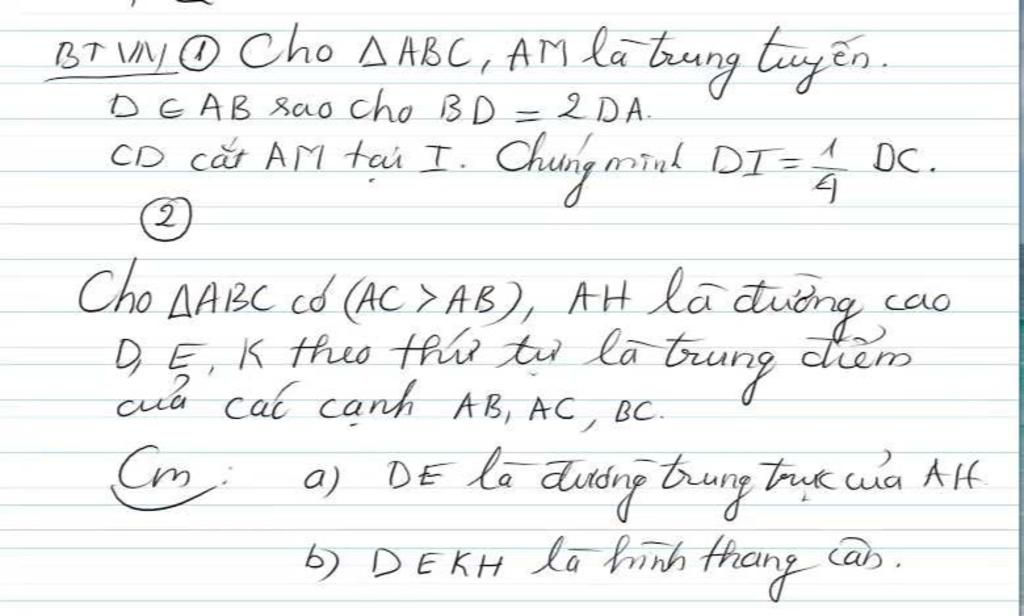 BTVN ① Cho △ABC, AM là trung tuyến.
D ∈ AB sao cho BD = 2DA.
CD cắt AM tại I. Chứng minh DI = 1/4 DC.
②
Cho △ABC có (AC > AB), AH là đường cao
D, E, K theo thứ tự là trung điểm
của các cạnh AB, AC, BC.
Cm: a) DE là đường trung trực của AH
b) DEKH là hình thang cân.